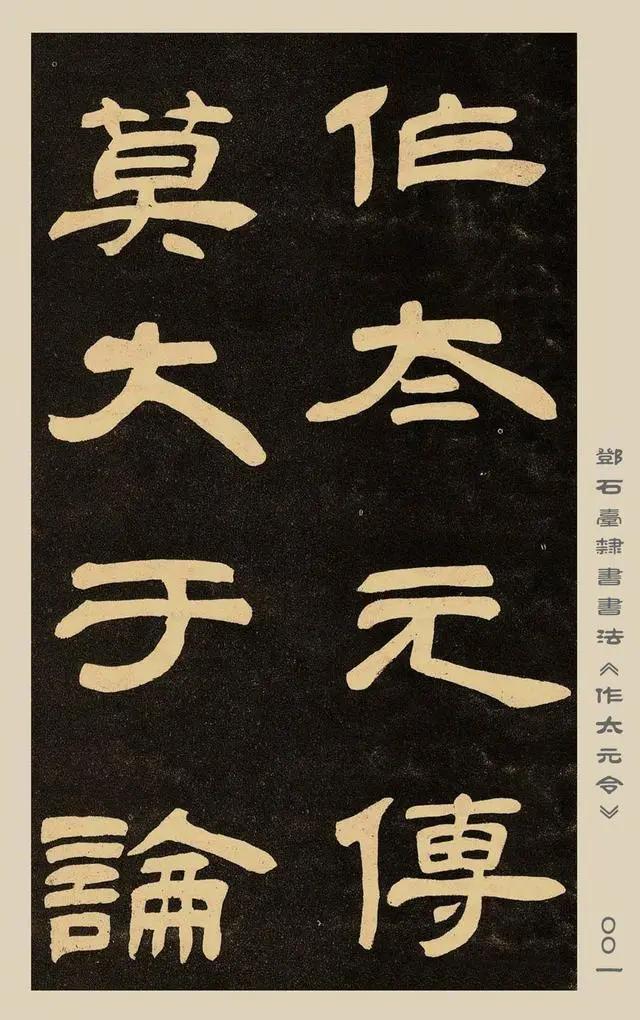 作太元傳
莫大于論
鄧石臺隸書書法《作太元令》
〇〇一